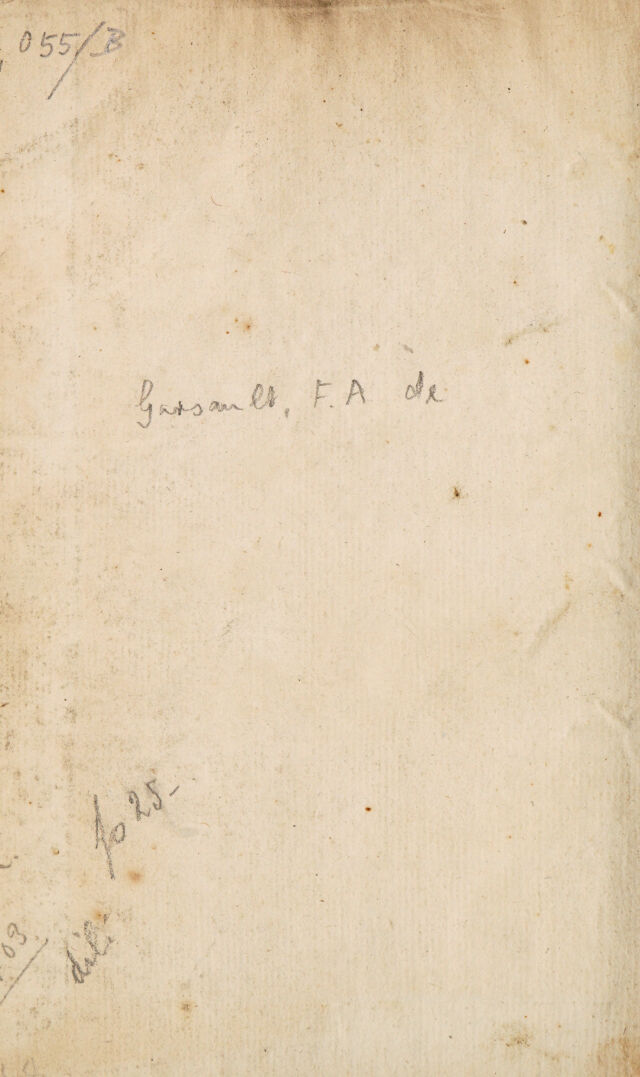 055/B
Garsault, F.A de
fo 25-
03